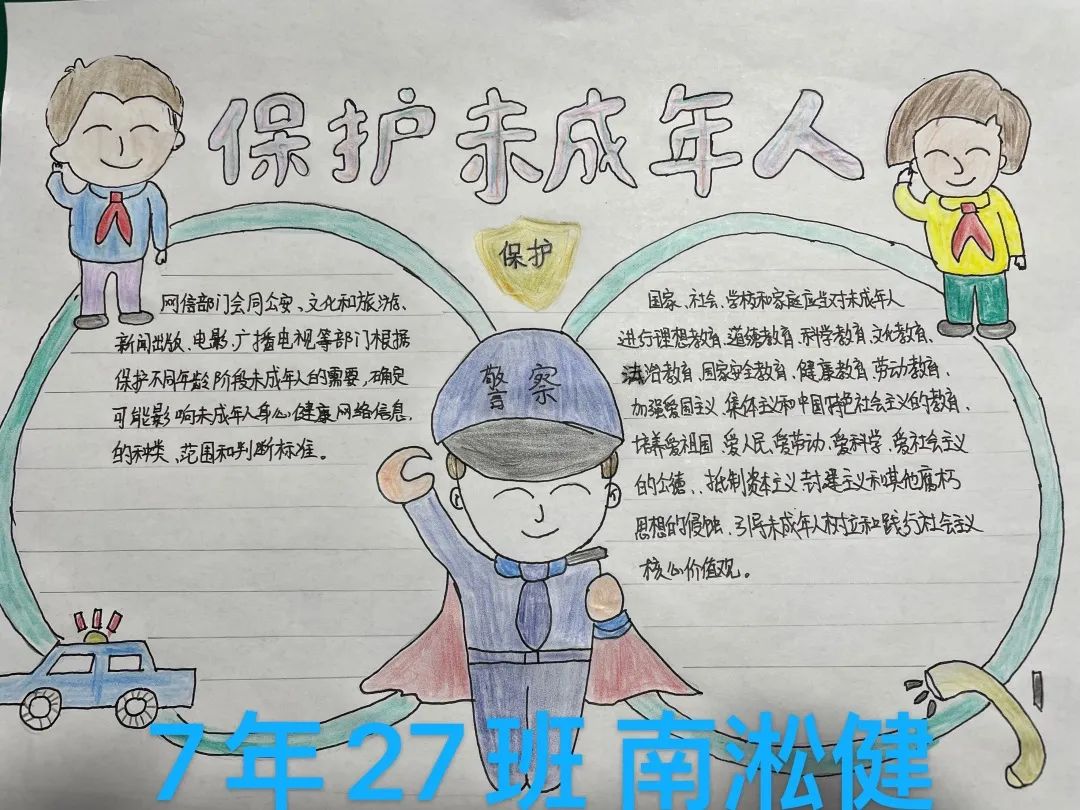 保护未成年人
保护
警察
网信部门会同公安、文化和旅游、
新闻出版、电影、广播电视等部门根据
保护不同年龄阶段未成年人的需要，确定
可能影响未成年人身心健康网络信息
的种类、范围和判断标准。
国家、社会、学校和家庭应当对未成年人
进行理想教育、道德教育、科学教育、文化教育、
法治教育、国家安全教育、健康教育、劳动教育，
加强爱国主义、集体主义和中国特色社会主义的教育，
培养爱祖国、爱人民、爱劳动、爱科学、爱社会主义
的公德，抵制资本主义、封建主义和其他腐朽
思想的侵蚀，引导未成年人树立和践行社会主义
核心价值观。
7年27班 南淞健